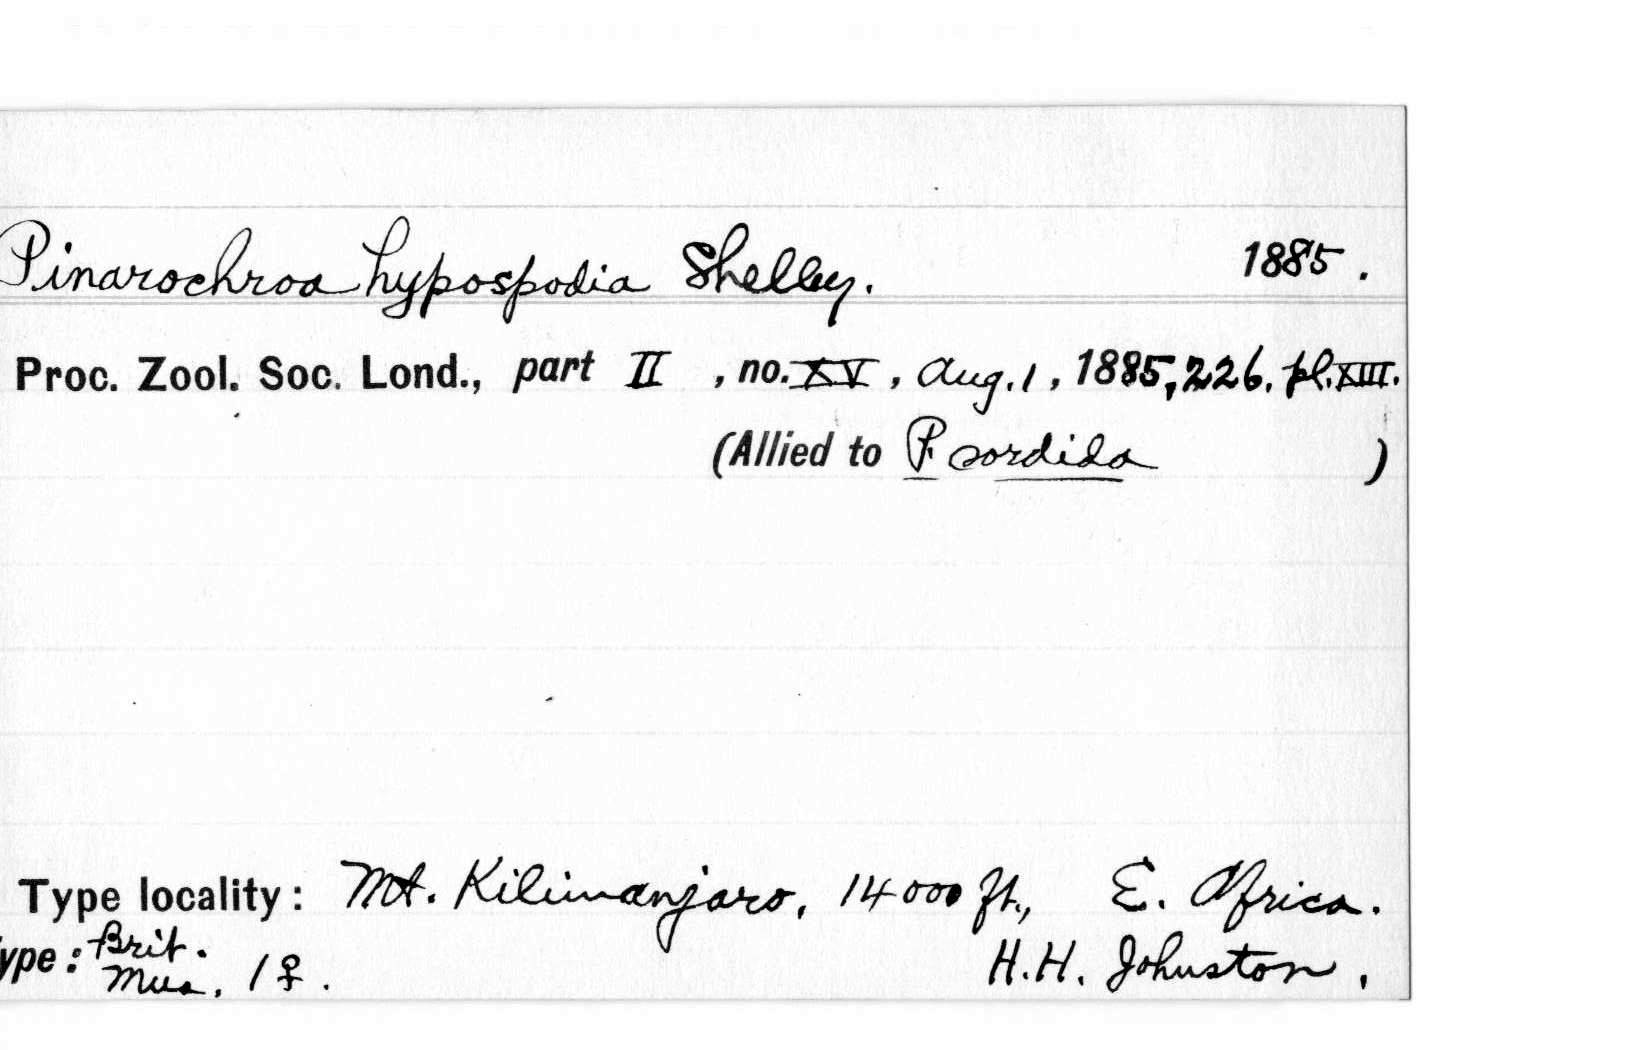 Pinarochroa hypospodia Shelley. 1885.
Proc. Zool. Soc. Lond., part II, no. XV, Aug. 1, 1885, 226, pl. XIII.
(Allied to P. sordida)
Type locality: Mt. Kilimanjaro, 14000 ft., E. Africa.
ype: Brit. Mus. 1♀. H.H. Johnston.